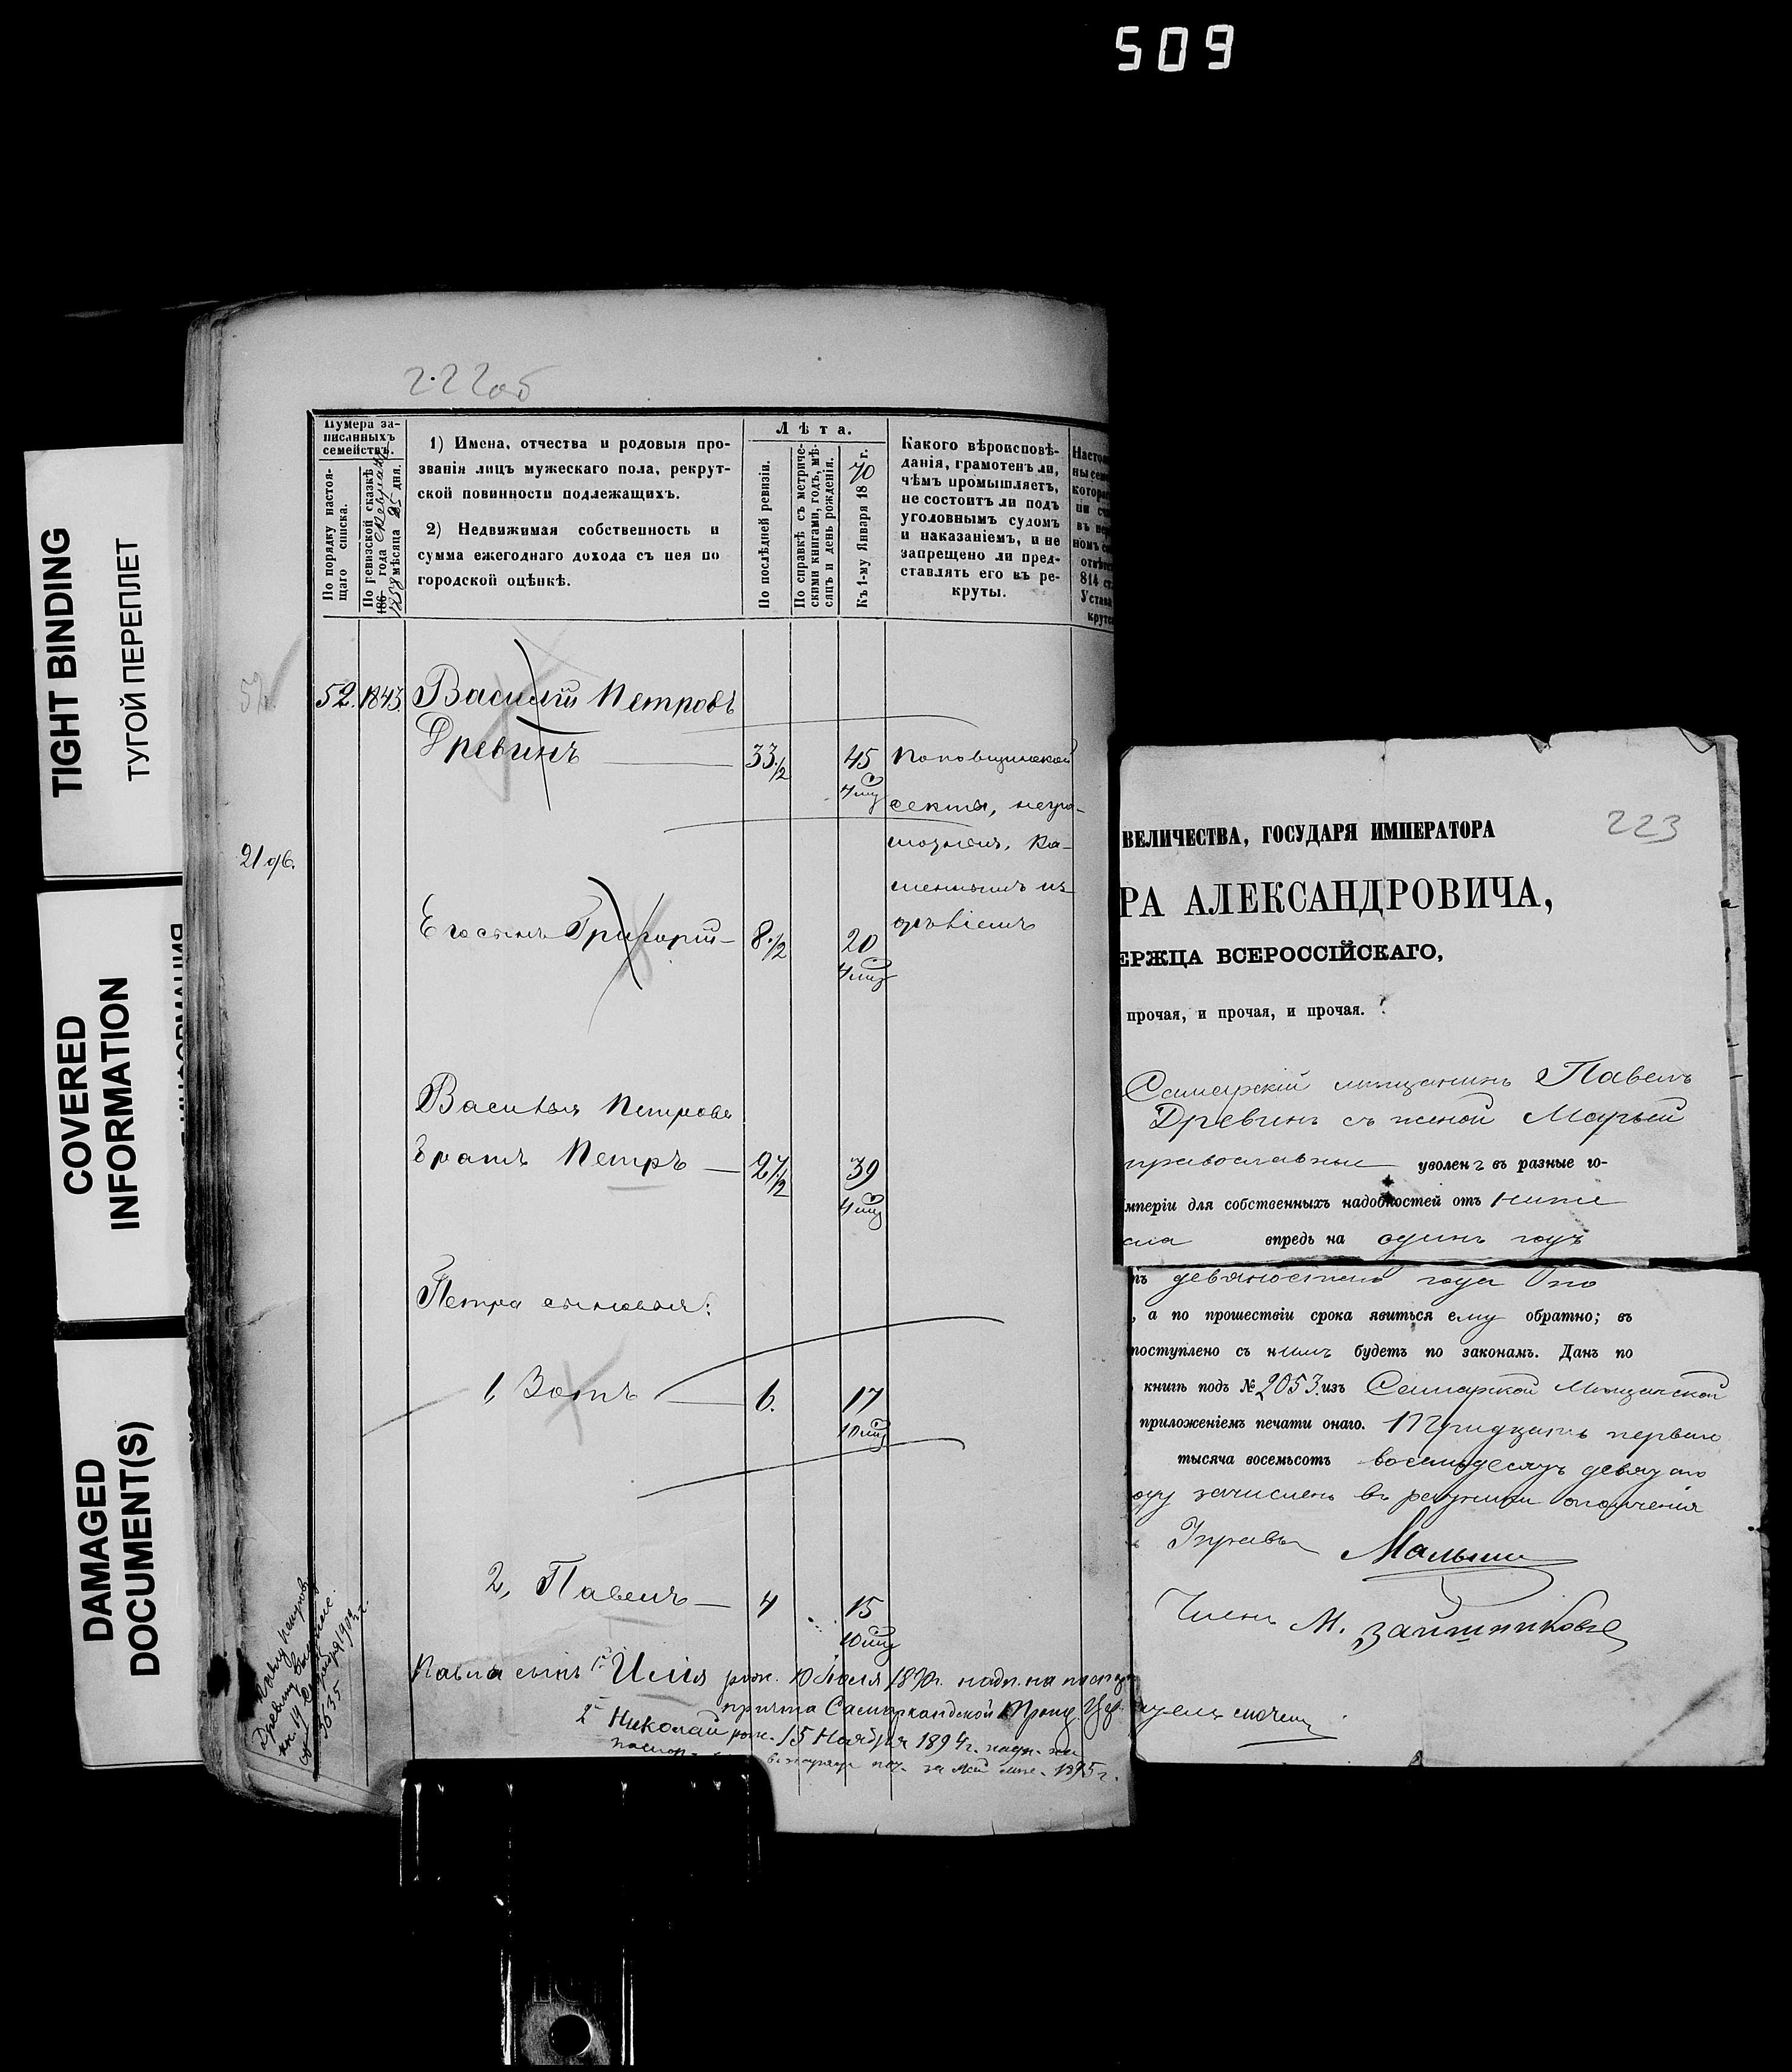 509
TIGHT BINDING
ТУГОЙ ПЕРЕПЛЕТ
COVERED
INFORMATION
DAMAGED
DOCUMENT(S)
222об
Нумера за-
писанныхъ
семействъ.
По порядку настоя-
щаго списка.
По ревизской сказкѣ
186 года
1858 мѣсяца 25 дня.
1) Имена, отчества и родовыя про-
званія лицъ мужескаго пола, рекрут-
ской повинности подлежащихъ.
2) Недвижимая собственность и
сумма ежегоднаго дохода съ нея по
городской оцѣнкѣ.
Лѣта.
По послѣдней ревизіи.
По справкѣ съ метриче-
скими книгами, годъ, мѣ-
сяцъ и день рожденія.
Къ 1-му Января 1870 г.
Какого вѣроисповѣ-
данія, грамотенъ ли,
чѣмъ промышляетъ,
не состоитъ ли подъ
уголовнымъ судомъ
и наказаніемъ, и не
запрещено ли пред-
ставлять его въ ре-
круты.
52
52. 1843. Василій Петровъ
Древинъ 33 1/2 45 Поповщинской
4 мц секты, негра-
мотенъ, Ка-
меннымъ из-
дѣліемъ
21 об.
Его сынъ Григорій 8 1/2 20
4 мц
Василья Петрова
братъ Петръ 27 1/2 39
4 мц
Петра сыновья:
1, Зотъ 6. 17
10 мц
2, Павелъ 4 15
10 мц
Павла сынъ 1й Илія рож. Іюля 1890г. надп. на паспор
причта Самаркандской Цер
2й Николай рож. 15 Ноября 1894г. надп. на
1895 г.
Павлу Петров
Древину
5635
223
ВЕЛИЧЕСТВА, ГОСУДАРЯ ИМПЕРАТОРА
РА АЛЕКСАНДРОВИЧА,
ЕРЖЦА ВСЕРОССІЙСКАГО,
прочая, и прочая, и прочая.
Самарскій мѣщанинъ Павелъ
Древинъ съ женой Марьей
православные уволенъ въ разные го-
мперіи для собственныхъ надобностей отъ ниже
сла впредь на одинъ годъ
девяностаго года
, а по прошествіи срока явиться ему обратно; въ
поступлено съ нимъ будетъ по законамъ. Данъ по
книгѣ подъ № 2053. изъ Самарской Мѣщанской
приложеніемъ печати онаго. Тридцать перваго
тысяча восемьсотъ восемьдесятъ девятаго
оду зачисленъ въ ратники ополченія
Управы
Членъ М.